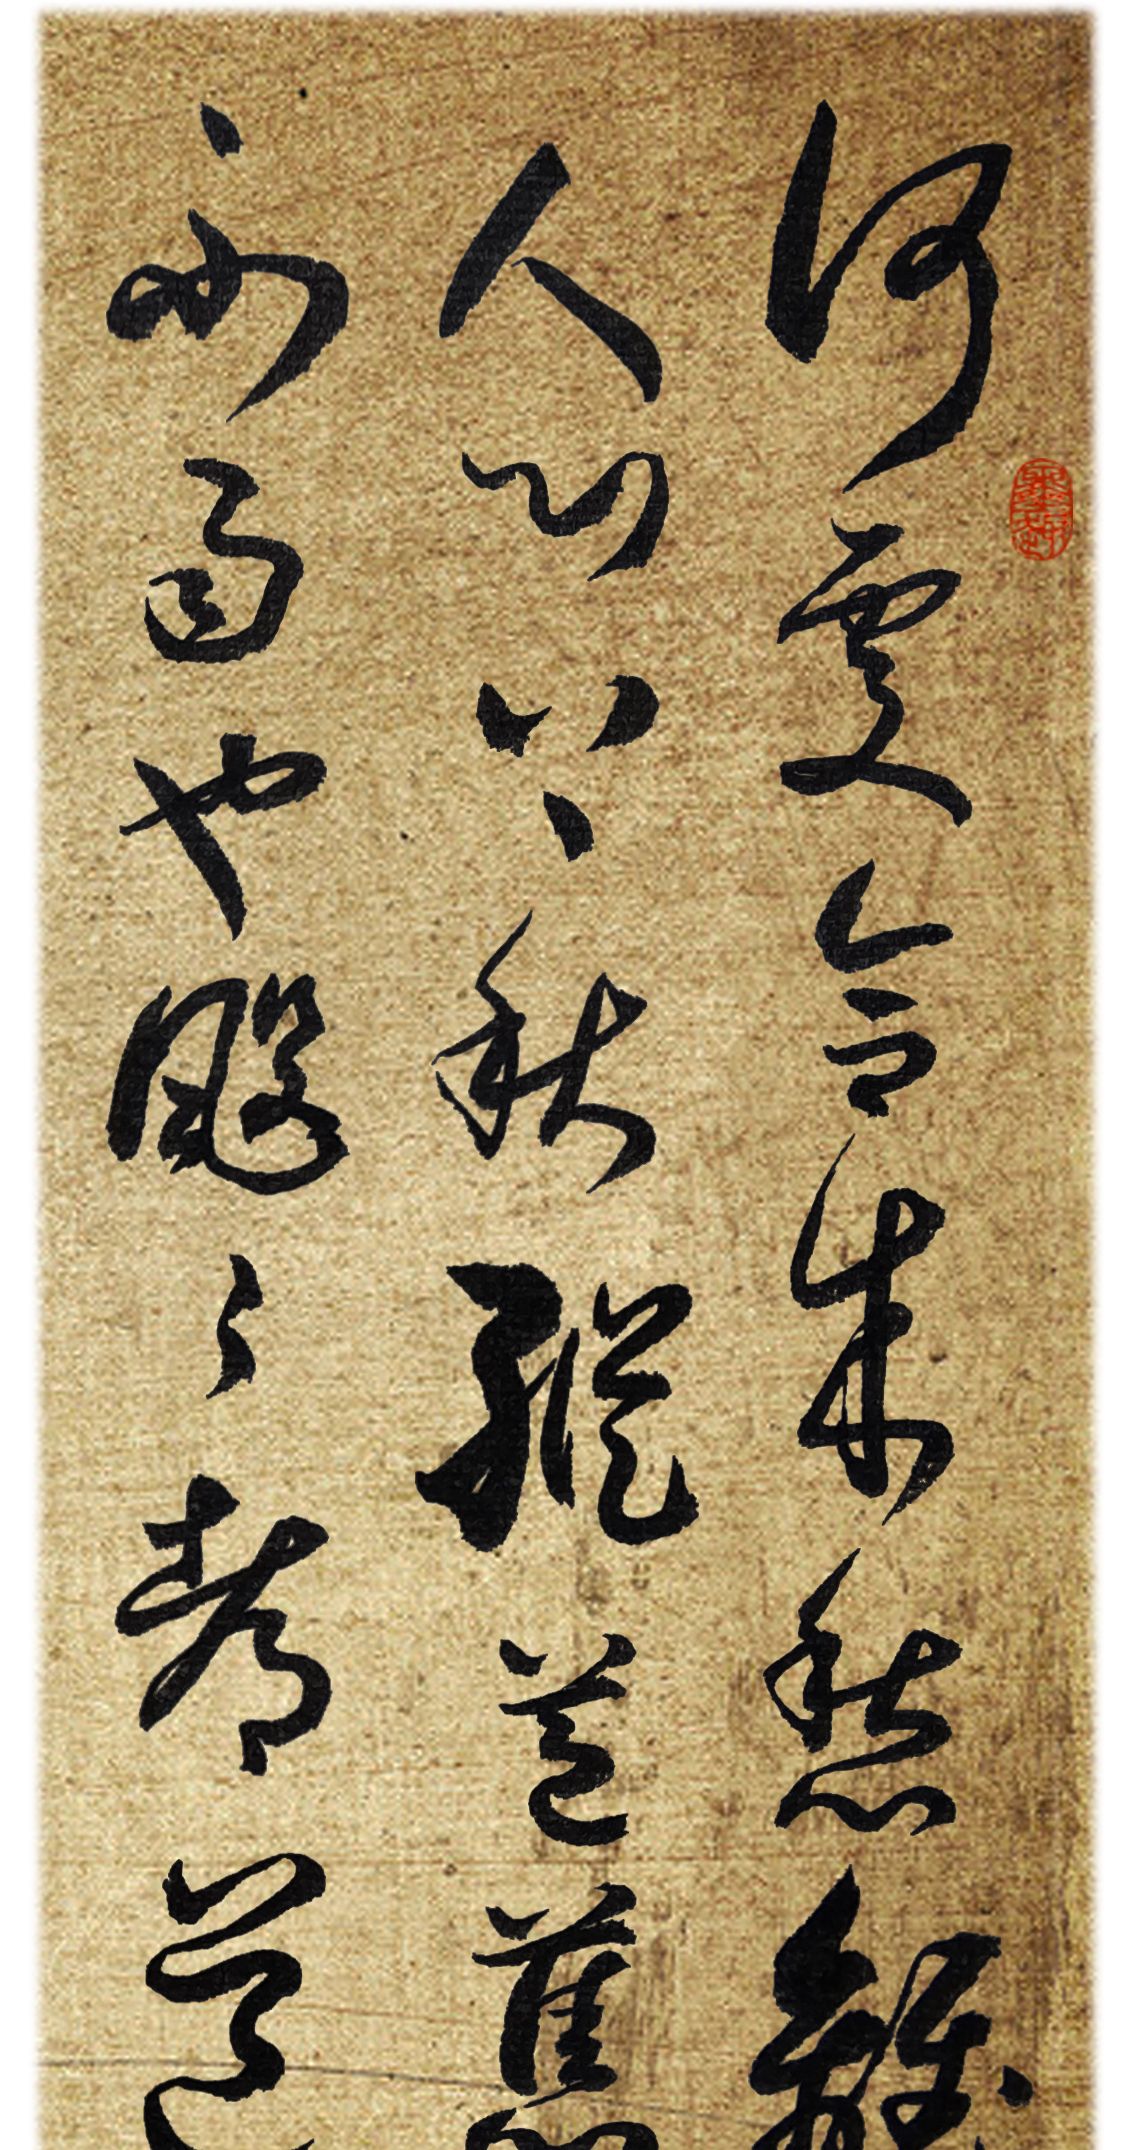 何處合成愁離
人心上秋縱芭蕉
不雨也飕飕都道